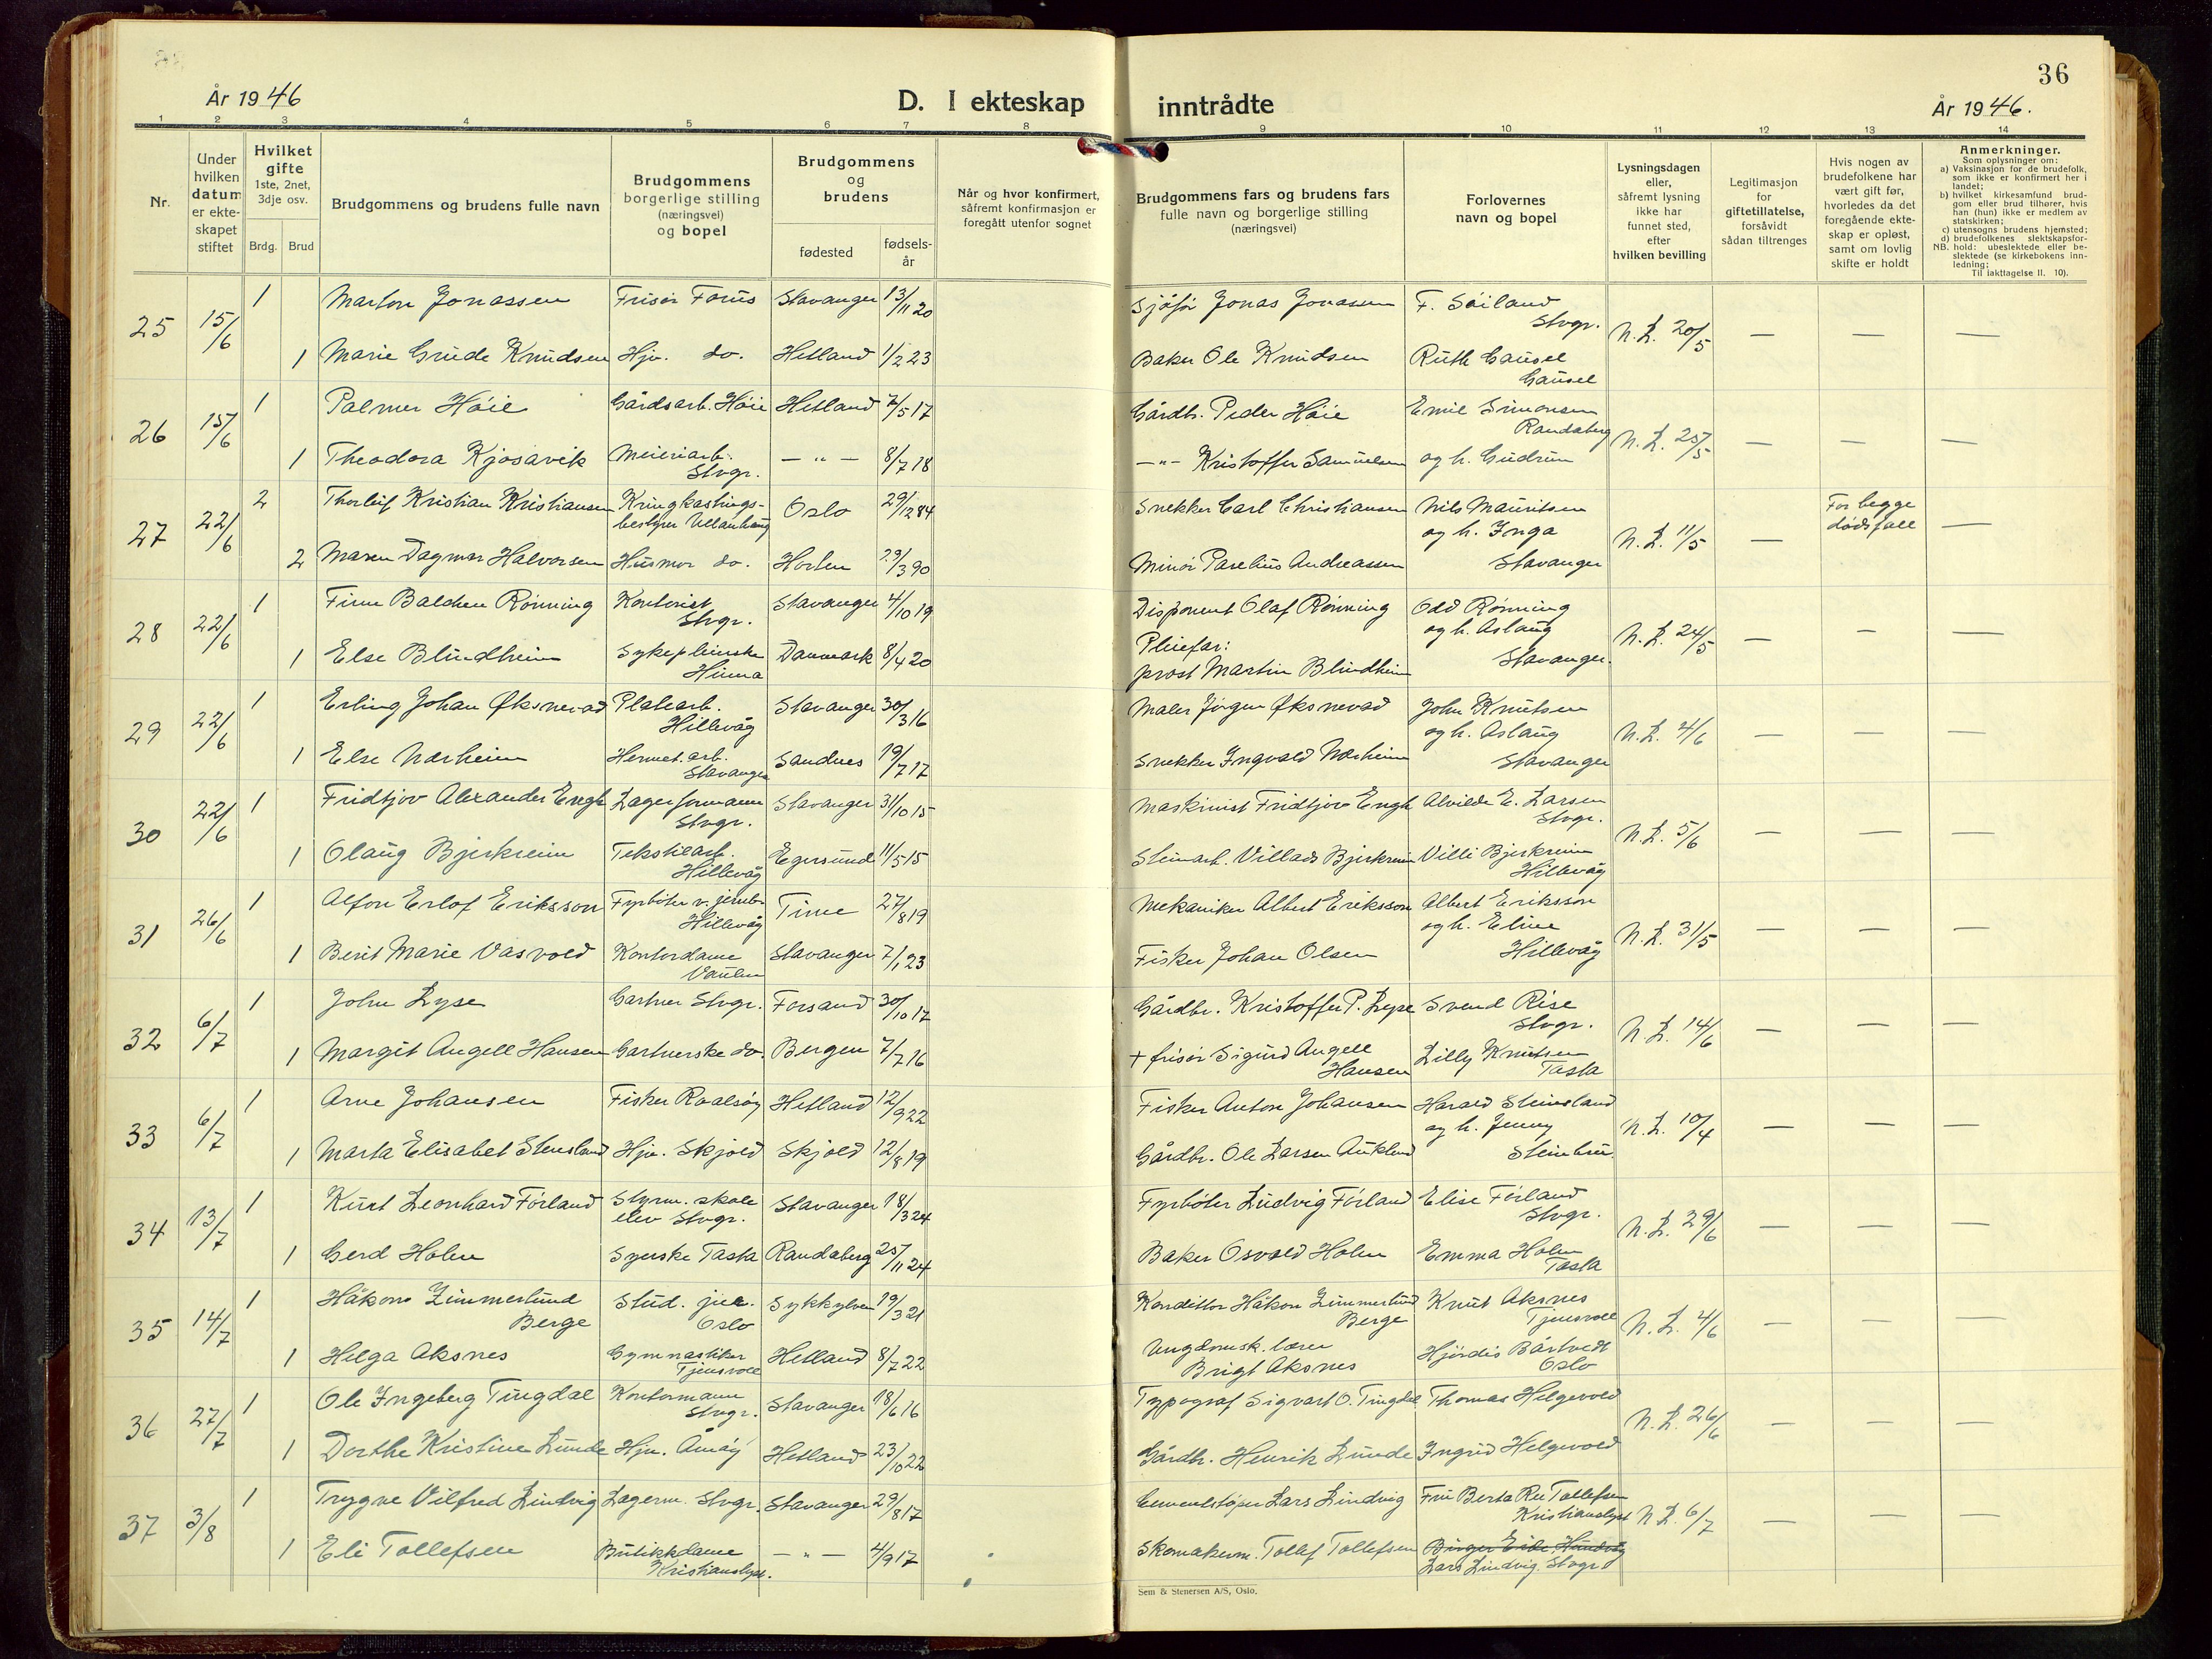 36
År 1946
D. I ekteskap inntrådte
År 1946.
1 2 3 4 5 6 7 8 9 10 11 12 13 14
Nr.
Under hvilken datum er ekteskapet stiftet
Hvilket gifte 1ste, 2net, 3dje osv.
Brdg. Brud
Brudgommens og brudens fulle navn
Brudgommens borgerlige stilling (næringsvei) og bopel
Brudgommens og brudens
fødested
fødsels-år
Når og hvor konfirmert, såfremt konfirmasjon er foregått utenfor sognet
Brudgommens fars og brudens fars fulle navn og borgerlige stilling (næringsvei)
Forlovernes navn og bopel
Lysningsdagen eller, såfremt lysning ikke har funnet sted, efter hvilken bevilling
Legitimasjon for giftetillatelse, forsåvidt sådan tiltrenges
Hvis nogen av brudefolkene har vært gift før, hvorledes da det foregående ekteskap er opløst, samt om lovlig skifte er holdt
Anmerkninger.
Som oplysninger om:
a) Vaksinasjon for de brudefolk, som ikke er konfirmert her i landet;
b) hvilket kirkesamfund brudgom eller brud tilhører, hvis han (hun) ikke er medlem av statskirken;
c) utensogns brudens hjemsted;
d) brudefolkenes slektskapsforhold: ubeslektede eller beslektede (se kirkebokens innledning;
NB.
Til iakttagelse II. 10).
25 15/6 1 Marton Jonassen Frisør Forus Stavanger 13/11 20 Sjåfør Jonas Jonassen F. Søiland Stvgr. N.L. 20/5 — — —
1 Marie Grude Knudsen Hjv. do. Hetland 1/2 23 Baker Ole Knudsen Ruth Gausel Gausel
26 15/6 1 Palmer Høie Gårdsarb. Høie Hetland 7/5 17 Gårdbr. Peder Høie Emil Simonsen Randaberg N.L. 25/5 — — —
1 Theodora Kjosavik Meieriarb. Stvgr. — " — 8/7 18 —"— Kristoffer Samuelsen og h. Gudrun
27 22/6 2 Thorleif Kristian Kristiansen Kringkastings-bestyrer Ullanhaug Oslo 29/12 84 Snekker Carl Christiansen Nils Mauritsen og h. Inga Stavanger N.L. 11/5 — For begge dødsfall —
2 Maren Dagmar Halvorsen Husmor do. Horten 29/3 90 Minør Paselius Andreassen
28 22/6 1 Finn Balchen Rønning Kontorist Stvgr. Stavanger 4/10 19 Disponent Olaf Rønning Odd Rønning og h. Aslaug Stavanger. N.L. 24/5 — — —
1 Else Blindheim Sykepleierske Hinna Danmark 8/4 20 Pleiefar: prost Martin Blindheim
29 22/6 1 Erling Johan Øksnevad Platearb. Hillevåg Stavanger 30/3 16 Maler Jørgen Øksnevad John Knutsen og h. Aslaug Stavanger N.L. 4/6 — — —
1 Else Nærheim Hermet. arb. Stavanger Sandnes 19/7 17 Snekker Ingvald Nærheim
30 22/6 1 Fridtjov Alexander Engh Lagerformann Stvgr. Stavanger 31/10 15 Maskinist Fridtjov Engh Alvilde E. Larsen Stvgr. N.L. 5/6 — — —
1 Olaug Bjerkreim Tekstilarb. Hillevåg Egersund 11/5 15 Steinarb. Villads Bjerkreim Villi Bjerkreim Hillevåg
31 26/6 1 Alfon Erlof Eriksson Fyrbøter v. jernb. Hillevåg Time 27/8 19 Mekaniker Albert Eriksson Albert Eriksson og h. Eline Hillevåg N.L. 31/5 — — —
1 Berit Marie Vasvold Kontordame Vaulen Stavanger 7/1 23 Fisker Johan Olsen
32 6/7 1 John Lyse Gartner Stvgr. Forsand 30/10 17 Gårdbr. Kristoffer P. Lyse Svend Rise Stvgr. N.L. 14/6 — — —
1 Margit Angell Hansen Gartnerske do. Bergen 7/7 16 + frisør Sigurd Angell Hansen Lilly Knutsen Tasta
33 6/7 1 Arne Johansen Fisker Roalsøy Hetland 12/9 22 Fisker Anton Johansen Harald Steinsland og h. Jenny Steinbru. N.L. 10/4 — — —
1 Marta Elisabet Stensland Hjv. Skjold Skjold 12/8 19 Gårdbr. Ole Larsen Aukland
34 13/7 1 Kurt Leonhard Førland Styrm. skole elev Stvgr. Stavanger 18/3 24 Fyrbøter Ludvig Førland Elise Førland Stvgr. N.L. 29/6 — — —
1 Gerd Holm Syerske Tasta Randaberg 25/11 24 Baker Osvald Holm Emma Holm Tasta
35 14/7 1 Håkon Zimmerlund Berge Stud. jur. Oslo Sykkylven 19/3 21 Konditor Håkon Zimmerlund Berge Knut Aksnes Tjensvoll N.L. 4/6 — — —
1 Helga Aksnes Gymnastiker Tjensvoll Hetland 8/7 22 Ungdomsk. lærer Brigt Aksnes Hjørdis Bårtvedt Oslo
36 27/7 1 Ole Ingeberg Tingdal Kontormann Stvgr. Stavanger 18/6 16 Typograf Sigvart O. Tingdal Thomas Helgevold N.L. 26/6 — — —
1 Dorthe Kristine Lunde Hjv. Åmøy Hetland 23/10 22 Gårdbr. Henrik Lunde Ingrid Helgevold
37 3/8 1 Trygve Vilfred Lindvig Lagerm. Stvgr. Stavanger 29/8 17 Cementstøper Lars Lindvig Fru Berta Ree Tollefsen Kristianslyst N.L. 6/7 — — —
1 Eli Tollefsen Butikkdame Kristianslyst. — " — 4/9 17 Skomakerm. Tollef Tollefsen Birger Eide Hundvåg Lars Lindvig Stvgr
Sem & Stenersen A/S, Oslo.